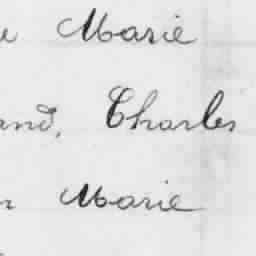 Marie
and, Charles
Marie